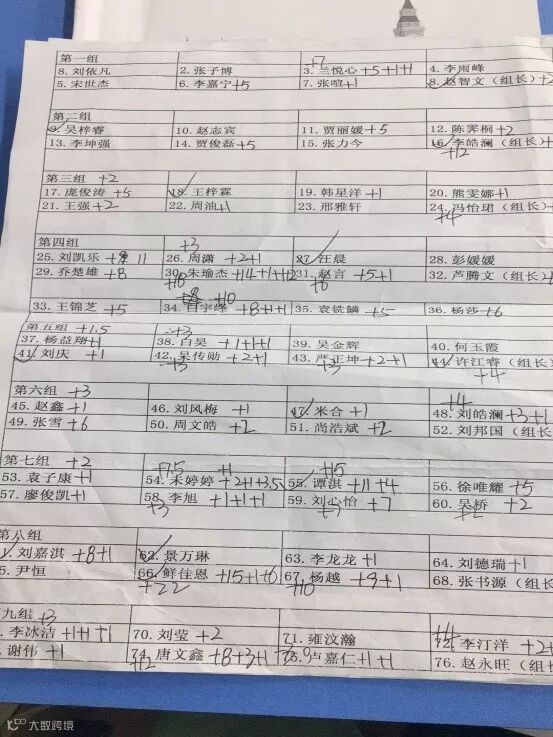 第一组
+7
8. 刘依凡 2. 张子博 3. 兰悦心 +5 +1+1 4. 李雨峰
5. 宋世杰 6. 李嘉宁+5 7. 张暄+1 8. 赵智文(组长)+2
第二组
9. 吴梓睿 10. 赵志宾 11. 贾丽媛+5 12. 陈霁桐+2
13. 李坤强 14. 贾俊磊+5 15. 张力今 16. 李皓澜(组长)
+12
第三组 +2
17. 庞俊涛+5 18. 王梓霖 19. 韩星洋+1 20. 熊雯娜+1
21. 王强+2 22. 周油+1 23. 邢雅轩 24. 冯怡珺(组长)
+4
第四组 +3
25. 刘凯乐 26. 周潇 +2+1 27. 汪晨 28. 彭媛媛
29. 乔楚雄+8 30. 朱瑜杰+14+1+1+2 31. 赵言+5+1 32. 芦腾文(组长)
+10 +6
+10
33. 王锦芝 +5 34. 肖宇峰 +8+1+1 35. 袁铣鳞+5 36. 杨莎+6
第五组 +1.5 +3
37. 杨益翔+1 38. 白昊 +1+1+1 39. 吴金辉 40. 何玉霞
41. 刘庆 +1 42. 吴传勋 +2+1 43. 严正坤+2+1 44. 许江睿(组长)
+3 +3 +4
第六组 +3 +4
45. 赵鑫+1 46. 刘风梅 +1 47. 米合+1 48. 刘皓澜+3+1
49. 张雪+6 50. 周文皓 +2 51. 尚浩斌+2 52. 刘邦国(组长)
第七组 +2 +7.5 +1 +15
53. 袁子康+1 54. 朱婷婷+2+1+3.5 55. 谭淇+11+4 56. 徐唯耀+5
57. 廖俊凯+1 58. 李旭 +1+1+1 59. 刘心怡+7 60. 吴桥 +2
+3
第八组
刘嘉淇+8+1 62. 景万琳 63. 李龙龙+1 64. 刘德瑞+1
5. 尹恒 66. 鲜佳恩+15+1+6 67. 杨越+9+1 68. 张书源(组长
+22 +10
九组 +3
李冰洁+1+1+1 70. 刘莹 +2 71. 雍汶瀚 72. 李汀洋 +2
谢伟 +1 74. 唐文鑫 +8+3+1 卢嘉仁+1+1 76. 赵永旺(组长)
+12
大数跨境